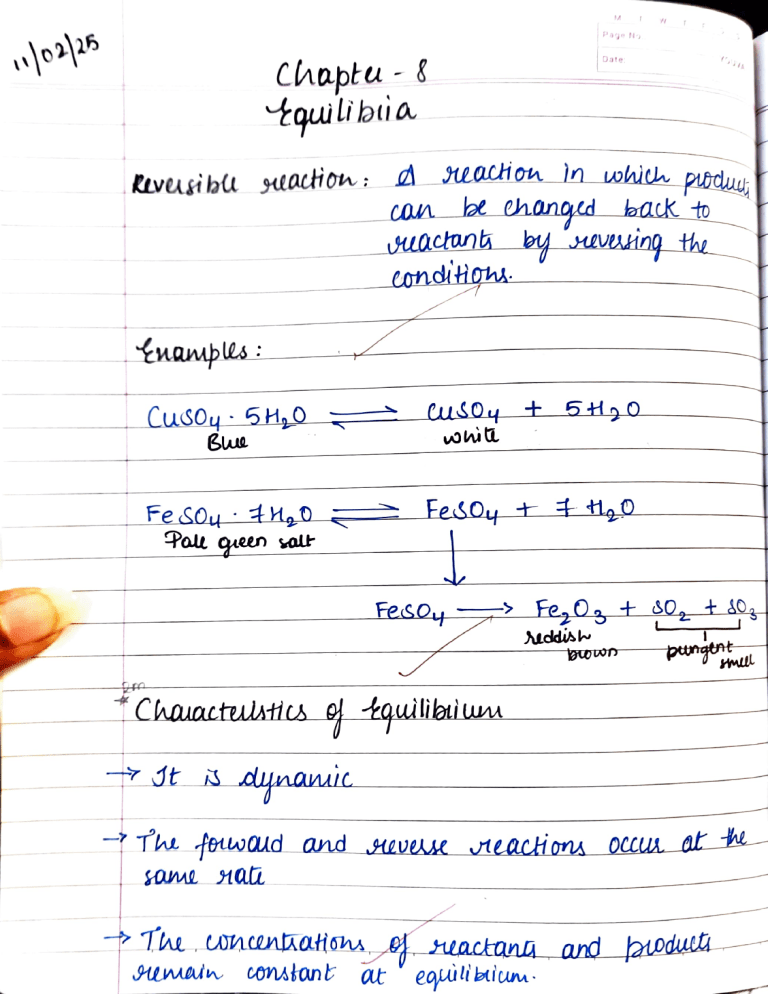 11/02/25
M T W T F S
Page No.:
Date:
Chapter - 8
Equilibria
Reversible reaction: A reaction in which products
can be changed back to
reactants by reversing the
conditions.
Examples:
CuSO₄ · 5H₂O ⇌ CuSO₄ + 5H₂O
Blue white
FeSO₄ · 7H₂O ⇌ FeSO₄ + 7H₂O
Pale green salt
↓
FeSO₄ → Fe₂O₃ + SO₂ + SO₃
reddish brown pungent smell
2m
* Characteristics of Equilibrium
→ It is dynamic
→ The forward and reverse reactions occur at the
same rate
→ The concentrations of reactants and products
remain constant at equilibrium.